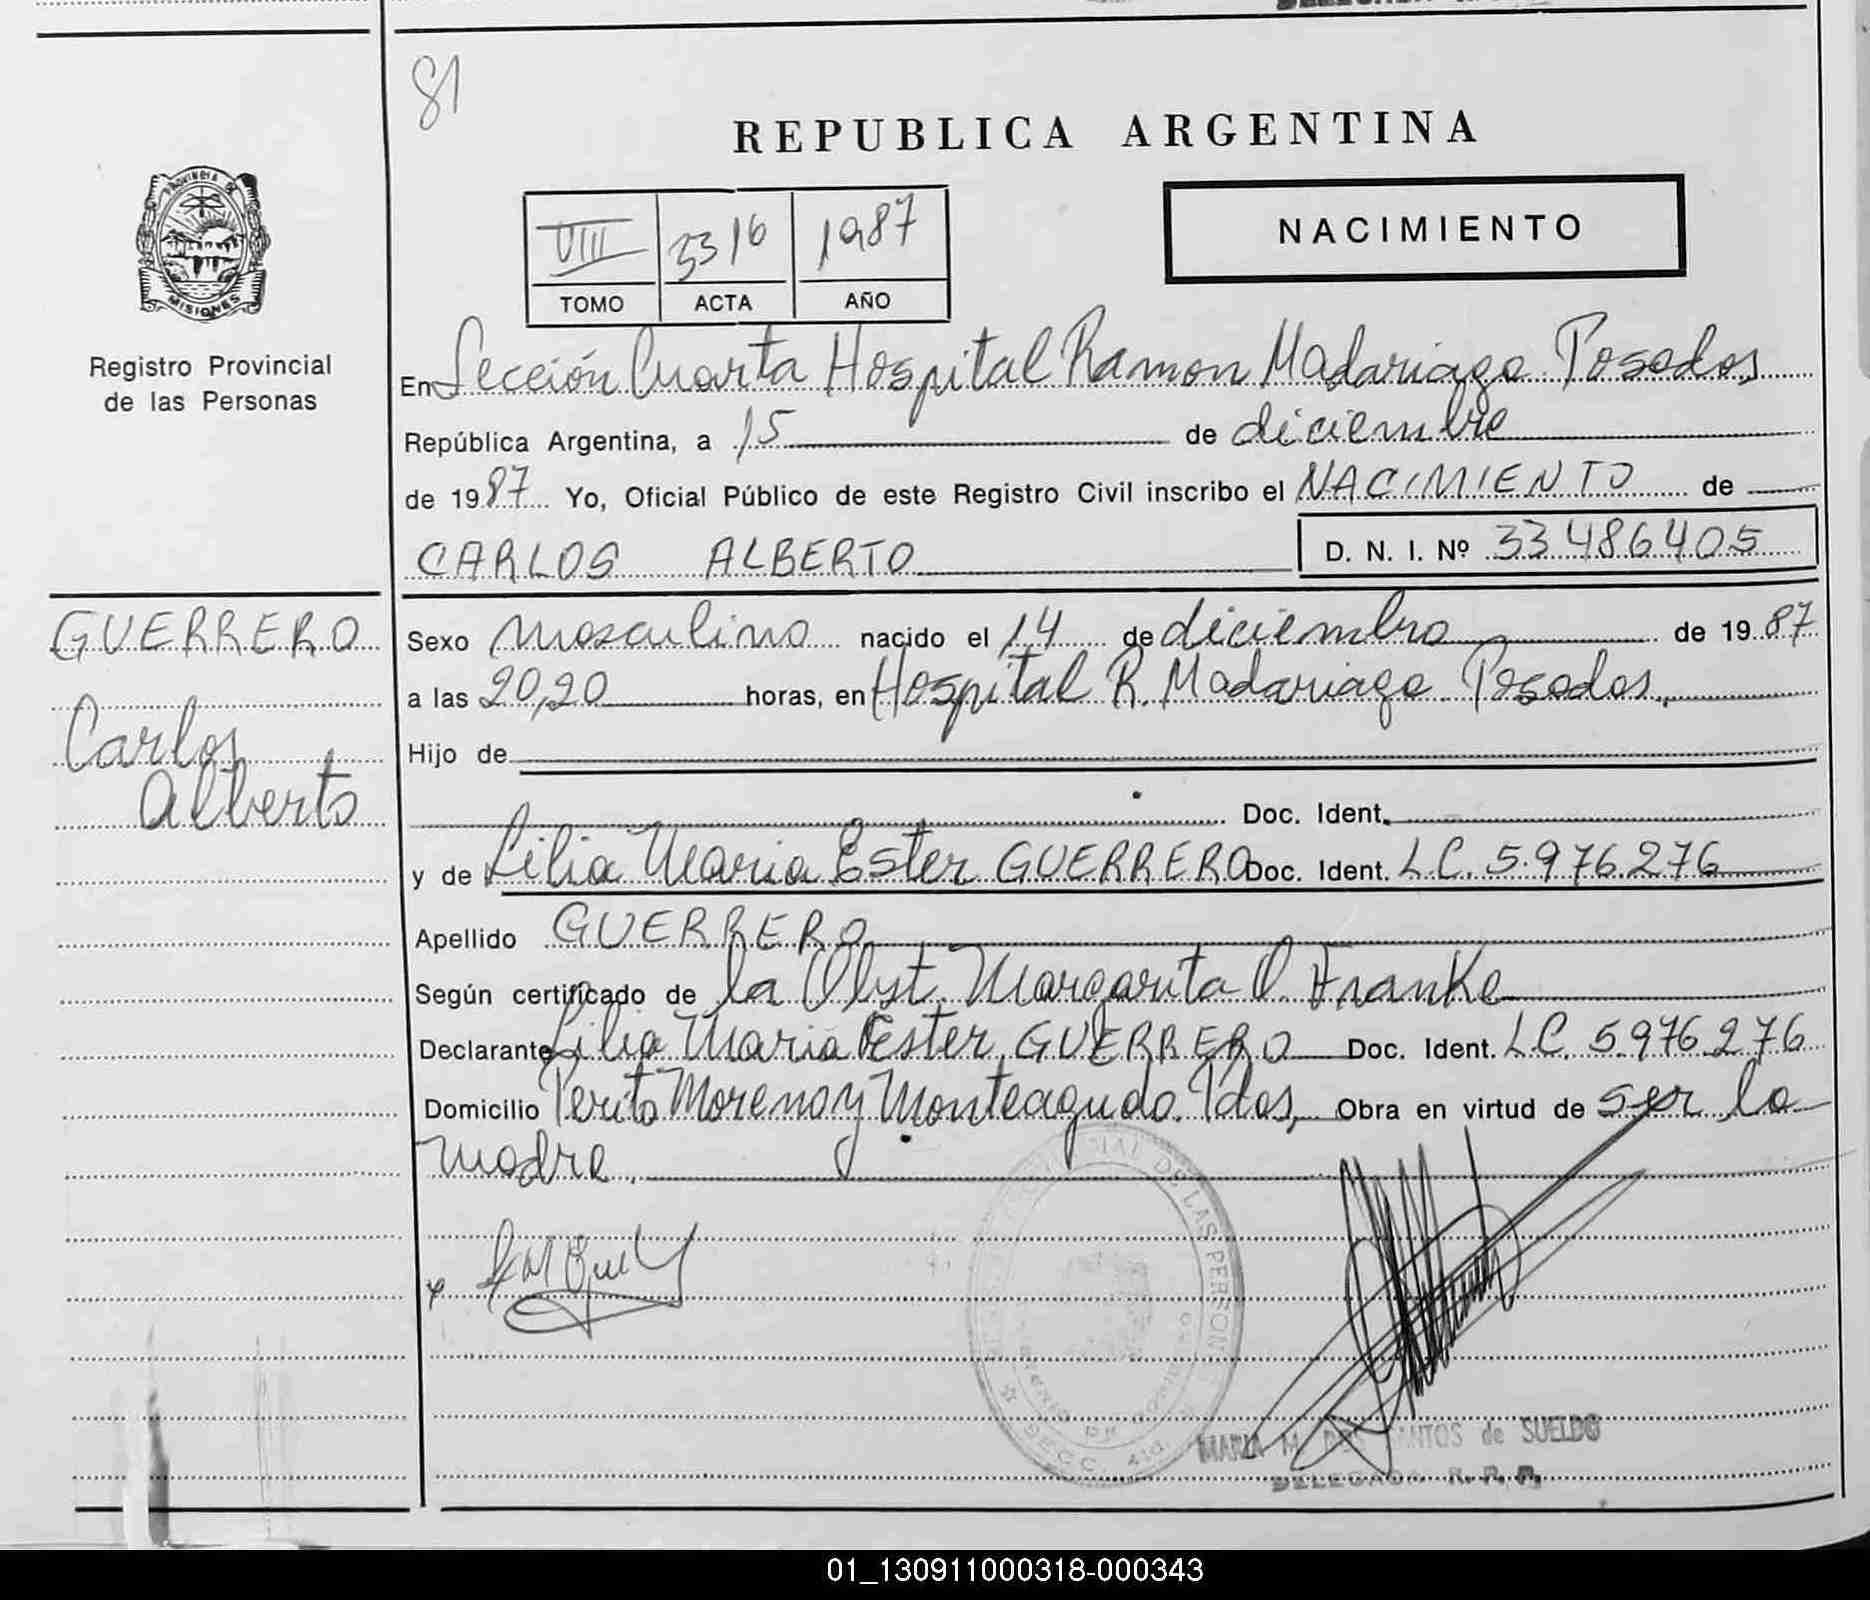 81
REPUBLICA ARGENTINA
PROVINCIA DE
MISIONES
Registro Provincial
de las Personas
VIII 3316 1987
TOMO ACTA AÑO
NACIMIENTO
En Sección Cuarta Hospital Ramon Madariaga Posadas,
República Argentina, a 15 de diciembre
de 1987 Yo, Oficial Público de este Registro Civil inscribo el NACIMIENTO de
CARLOS ALBERTO D. N. I. Nº 33486405
GUERRERO
Carlos
Alberto
Sexo masculino nacido el 14 de diciembre de 1987
a las 20,20 horas, en Hospital R. Madariaga Posadas,
Hijo de
Doc. Ident.
y de Lilia Maria Ester GUERRERO Doc. Ident. LC. 5.976.276
Apellido GUERRERO
Según certificado de la Obst. Margarita O. Franke
Declarante Lilia Maria Ester GUERRERO Doc. Ident. LC. 5.976.276
Domicilio Perito Moreno y Monteagudo. Pdas, Obra en virtud de ser la
madre.
DE LAS PERSONAS
SECC. 4ta.
MARIA M. DOS SANTOS de SUELDO
DELEGADA R. P. P.
01_130911000318-000343